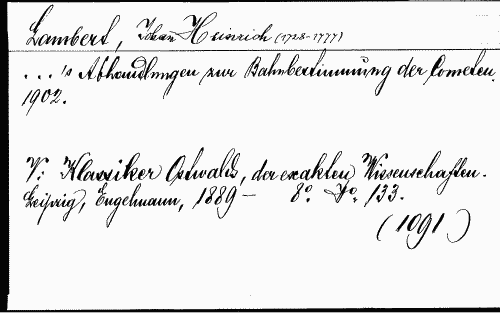 Lambert, Johann Heinrich (1728-1777)
...'s Abhandlungen zur Bahnbestimmung der Cometen.
1902.
V: Klassiker Ostwalds, der exakten Wissenschaften.
Leipzig, Engelmann, 1889 – 8°. No. 133.
(1091)